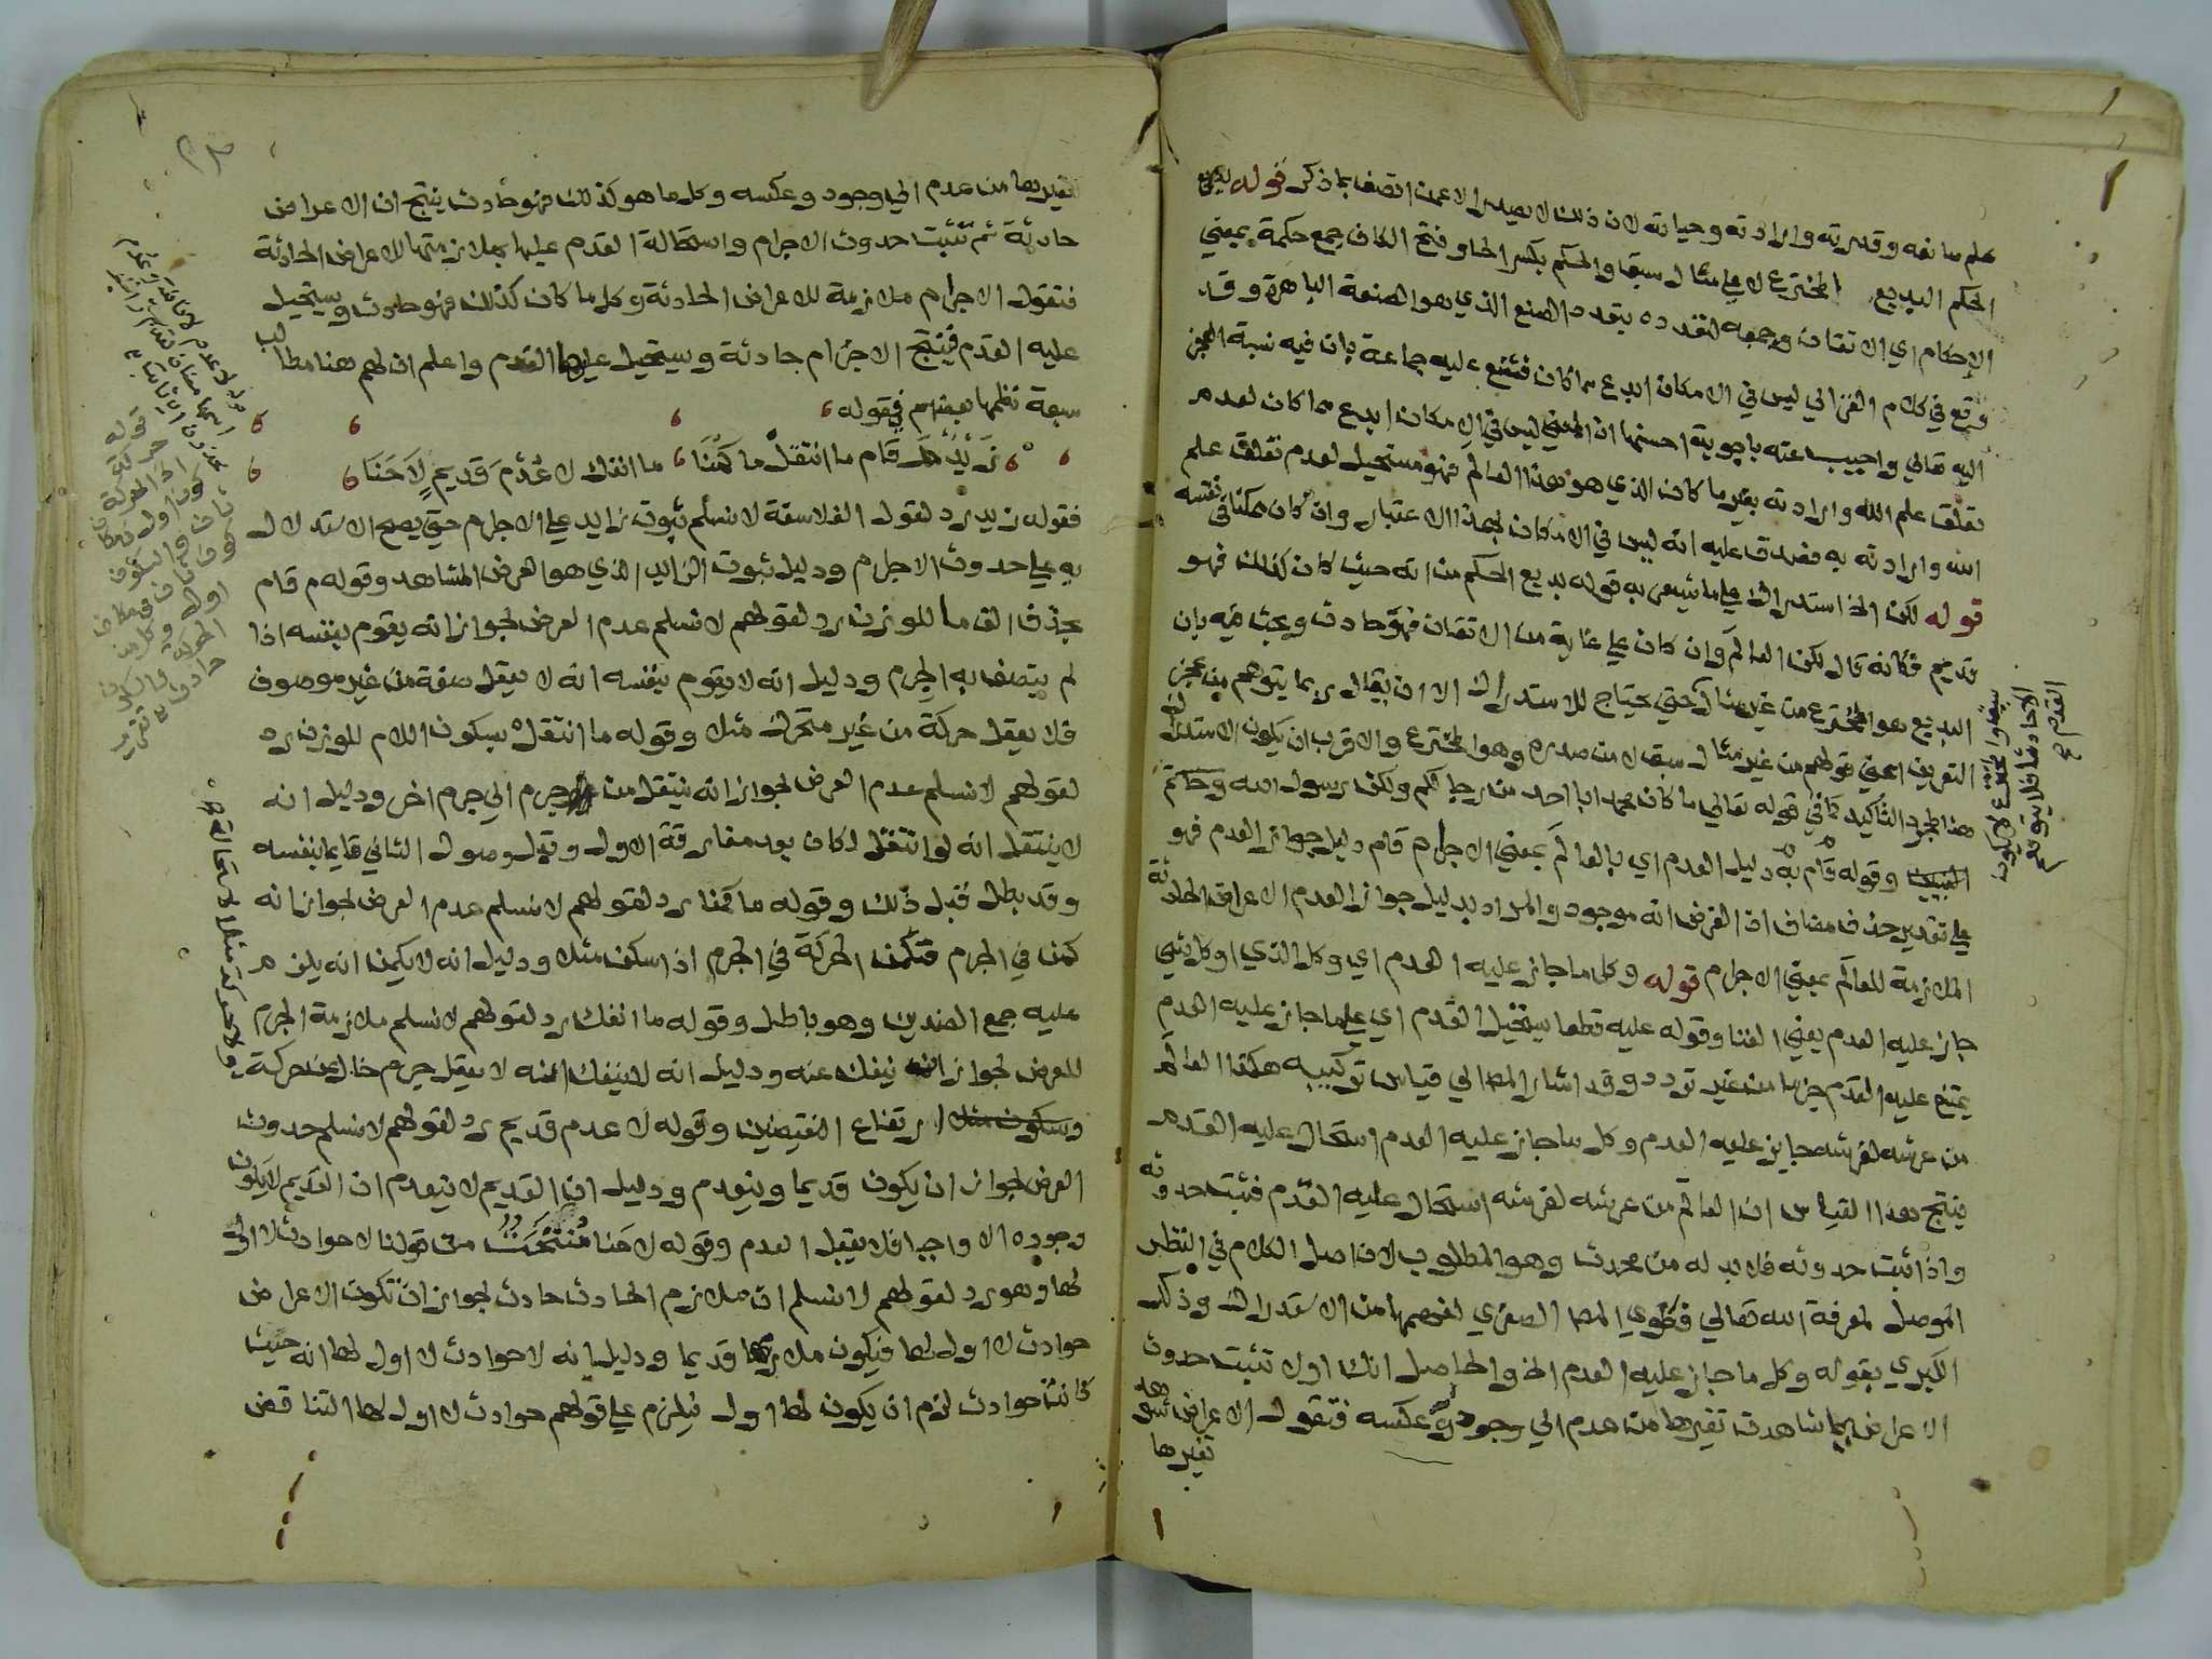 علم صانعه وقدرته وارادته وحياته لان ذلك لا يصدر الا عمن اتصف بما ذكر قوله بديع
الحكم البديع المخترع لا على مثال سبق والحكم بكسر الحا وفتح الكاف جمع حكمة بمعنى
الإحكام اي الاتقان وجمعه لتعدده بتعدد الصنع الذي هو الصنعة الباهرة وقد
وقع في كلام الغزالي ليس في الامكان ابدع مما كان فشنع عليه جماعة بان فيه نسبة العجز
اليه تعالى واجيب عنه باجوبة احسنها ان المعنى ليس في الامكان ابدع مما كان لعدم
تعلق علم الله وارادته بغير ما كان الذي هو هذا العالم فهو مستحيل لعدم تعلق علم
الله وارادته به فصدق عليه انه ليس في الامكان بهذا الاعتبار وان كان ممكنا في نفسه
قوله لكن الخ استدراك على ما يشعر به قوله بديع الحكم من انه حيث كان كذلك فهو
قديم فكانه قال لكن العالم وان كان على غاية من الاتقان فهو حادث وبحث فيه بان
البديع هو المخترع من غير مثال حتى يحتاج للاستدراك الا ان يقال ربما يتوهم من عجز
التعريف اعني قولهم من غير مثال سبق لا من صدره وهو المخترع والاقرب ان يكون الاستدراك
هنا لمجرد التأكيد كما في قوله تعالى ما كان محمد ابا احد من رجالكم ولكن رسول الله وخاتم
النبيين وقوله قام به دليل العدم اي بالعالم بمعنى الاجرام قام دليل جواز العدم فهو
على تقدير حذف مضاف اذ الغرض انه موجود والمراد بدليل جواز العدم الاعراض الحادثة
الملازمة للعالم بمعنى الاجرام قوله وكل ما جاز عليه العدم اي وكل الذي او كل شيء
جاز عليه العدم يعني الفنا وقوله عليه قطعا يستحيل القدم اي على ما جاز عليه العدم
يمتنع عليه القدم جزما من غير تردد وقد اشار المص الى قياس تركيبه هكذا العالم
من عرشه لفرشه جايز عليه العدم وكل ما جاز عليه العدم استحال عليه القدم
ينتج هذا القياس ان العالم من عرشه لفرشه استحال عليه القدم فثبت حدوثه
واذا ثبت حدوثه فلا بد له من محدث وهو المطلوب لان اصل الكلام في النظر
الموصل لمعرفة الله تعالى فطوى المص الصغرى لفهمها من الاستدراك وذكر
الكبرى بقوله وكل ما جاز عليه العدم الخ والحاصل انك اولا تثبت حدوث
الاعراض بما شاهدت تغيرها من عدم الى وجود وعكسه فتقول الاعراض شوهد
تغيرها
تغيرها من عدم الى وجود وعكسه وكل ما هو كذلك فهو حادث ينتج ان الاعراض
حادثة ثم تثبت حدوث الاجرام واستحالة القدم عليها بملازمتها للاعراض الحادثة
فتقول الاجرام ملازمة للاعراض الحادثة وكل ما كان كذلك فهو حادث ويستحيل
عليه القدم فينتج الاجرام حادثة ويستحيل عليها القدم واعلم ان لهم هنا مطالب
سبعة نظمها بعضهم في قوله
زَيْدٌ مَ قَام ما انتقلْ ما كَمَنَا ما انفك لا عُدْمَ قَديمٍ لَاحَنَا
فقوله زيد رد لقول الفلاسفة لا نسلم ثبوت زايد على الاجرام حتى يصح الاستدلال
به على حدوث الاجرام ودليل ثبوت الزايد الذي هو العرض المشاهد وقوله م قام
بحذف الف ما للوزن رد لقولهم لا نسلم عدم العرض لجواز انه يقوم بنفسه اذا
لم يتصف به الجرم ودليل انه لا يقوم بنفسه انه لا يعقل صفة من غير موصوف
فلا يعقل حركة من غير متحرك مثلا وقوله ما انتقلْ بسكون اللام للوزن رد
لقولهم لا نسلم عدم العرض لجواز انه ينتقل من جرم الى جرم اخر ودليل انه
لا ينتقل انه لو انتقل لكان بعد مفارقة الاول وقبل وصول الثاني قايما بنفسه
وقد بطل قبل ذلك وقوله ما كمنا رد لقولهم لا نسلم عدم العرض لجواز انه
كمن في الجرم فتكمن الحركة في الجرم اذا سكن مثلا ودليل انه لا يكمن انه يلزم
عليه جمع الضدين وهو باطل وقوله ما انفك رد لقولهم لا نسلم ملازمة الجرم
للعرض لجواز انه ينفك عنه ودليل انه لا ينفك عنه لا يعقل جرم خال عن حركة
وسكون مثلا ارتفاع النقيضين وقوله لا عدم قديم رد لقولهم لا نسلم حدوث
العرض لجواز ان يكون قديما وينعدم ودليل ان القديم لا ينعدم ان القديم لا يكون
وجوده الا واجبا فلا يقبل العدم وقوله لاحنا مُنْتَحَتٌ من قولنا لا حوادث لا اول
لها وهو رد لقولهم لا نسلم ان ملازم الحادث حادث لجواز ان تكون الاعراض
حوادث لا اول لها فيكون ملازمها قديما ودليل انه لا حوادث لا اول لها انه حيث
كانت حوادث لزم ان يكون لها اول فيلزم على قولهم حوادث لا اول لها التناقض